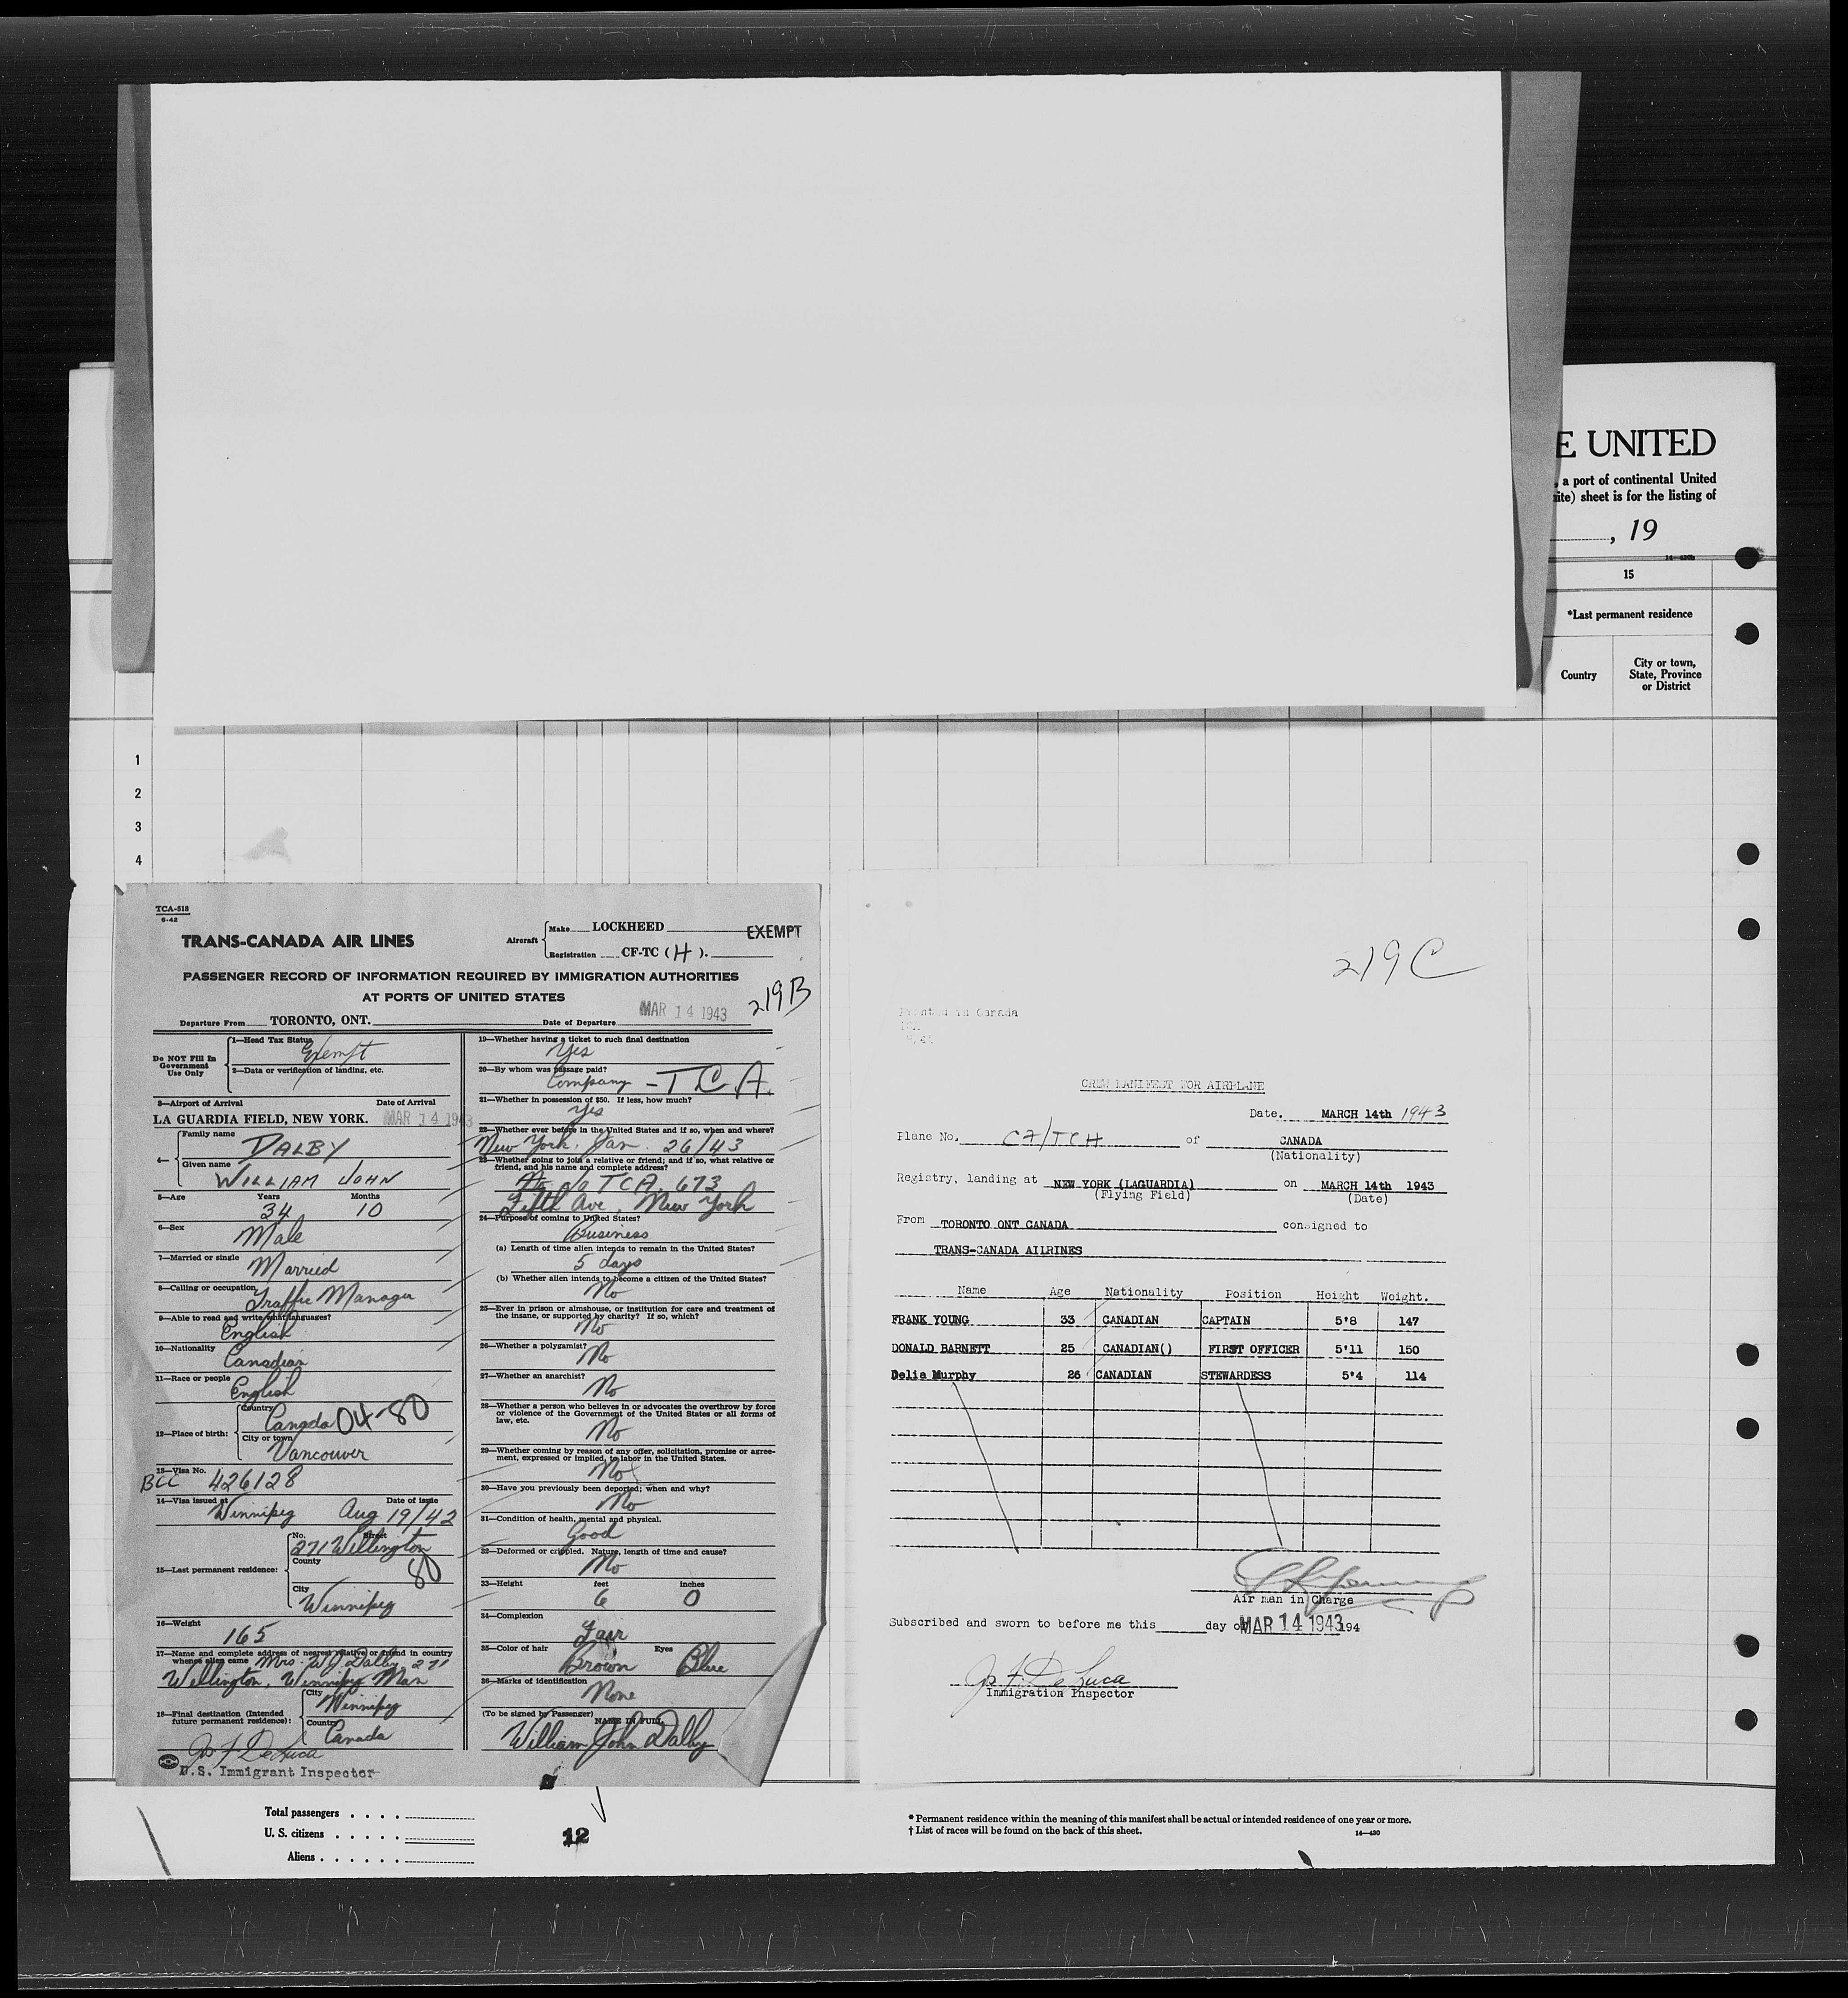 E UNITED
, a port of continental United
ite) sheet is for the listing of
, 19
14-430b
15
*Last permanent residence
Country
City or town,
State, Province
or District
1
2
3
4
TCA-518
6-42
TRANS-CANADA AIR LINES
Aircraft
Make LOCKHEED
EXEMPT
Registration CF-TC (H).
PASSENGER RECORD OF INFORMATION REQUIRED BY IMMIGRATION AUTHORITIES
AT PORTS OF UNITED STATES
219B
Departure From TORONTO, ONT. Date of Departure MAR 14 1943
Do NOT Fill In
Government
Use Only
1—Head Tax Status
Exempt
2—Data or verification of landing, etc.
3—Airport of Arrival Date of Arrival
LA GUARDIA FIELD, NEW YORK. MAR 14 1943
4—
Family name
DALBY
Given name
WILLIAM JOHN
5—Age Years Months
34 10
6—Sex
Male
7—Married or single
Married
8—Calling or occupation
Traffic Manager
9—Able to read and write what languages?
English
10—Nationality
Canadian
11—Race or people
English
12—Place of birth:
Country
Canada 04-80
City or town
Vancouver
13—Visa No.
BCC 426128
14—Visa issued at Date of issue
Winnipeg Aug 19/42
15—Last permanent residence:
No. Street
271 Wellington
County
80
City
Winnipeg
16—Weight
165
17—Name and complete address of nearest relative or friend in country
whence alien came Mrs. W J Dalby 271
Wellington, Winnipeg Man
18—Final destination (Intended
future permanent residence):
City
Winnipeg
Country
Canada
Jos F. De Luca
U.S. Immigrant Inspector
19—Whether having a ticket to such final destination
Yes
20—By whom was passage paid?
Company - T C A.
21—Whether in possession of $50. If less, how much?
Yes
22—Whether ever before in the United States and if so, when and where?
New York, Jan. 26/43
23—Whether going to join a relative or friend; and if so, what relative or
friend, and his name and complete address?
No c/o TCA, 673
Fifth Ave, New York
24—Purpose of coming to United States?
Business
(a) Length of time alien intends to remain in the United States?
5 days
(b) Whether alien intends to become a citizen of the United States?
No
25—Ever in prison or almshouse, or institution for care and treatment of
the insane, or supported by charity? If so, which?
No
26—Whether a polygamist?
No
27—Whether an anarchist?
No
28—Whether a person who believes in or advocates the overthrow by force
or violence of the Government of the United States or all forms of
law, etc.
No
29—Whether coming by reason of any offer, solicitation, promise or agree-
ment, expressed or implied, to labor in the United States.
No
30—Have you previously been deported; when and why?
No
31—Condition of health, mental and physical.
Good
32—Deformed or crippled. Nature, length of time and cause?
No
33—Height feet inches
6 0
34—Complexion
Fair
35—Color of hair Eyes
Brown Blue
36—Marks of identification
None
(To be signed by Passenger)
NAME IN FULL
William John Dalby
219C
Printed in Canada
CREW MANIFEST FOR AIRPLANE
Date. MARCH 14th 1943
Plane No. CF/TCH of CANADA
(Nationality)
Registry, landing at NEW YORK (LAGUARDIA) on MARCH 14th 1943
(Flying Field) (Date)
From TORONTO ONT CANADA consigned to
TRANS-CANADA AILRINES
Name Age Nationality Position Height Weight.
FRANK YOUNG 33 CANADIAN CAPTAIN 5'8 147
DONALD BARNETT 25 CANADIAN() FIRST OFFICER 5'11 150
Delia Murphy 26 CANADIAN STEWARDESS 5'4 114
Air man in Charge
Subscribed and sworn to before me this day of MAR 14 1943 194
Jos F. De Luca
Immigration Inspector
Total passengers
U. S. citizens
Aliens
12
* Permanent residence within the meaning of this manifest shall be actual or intended residence of one year or more.
† List of races will be found on the back of this sheet.
14-430